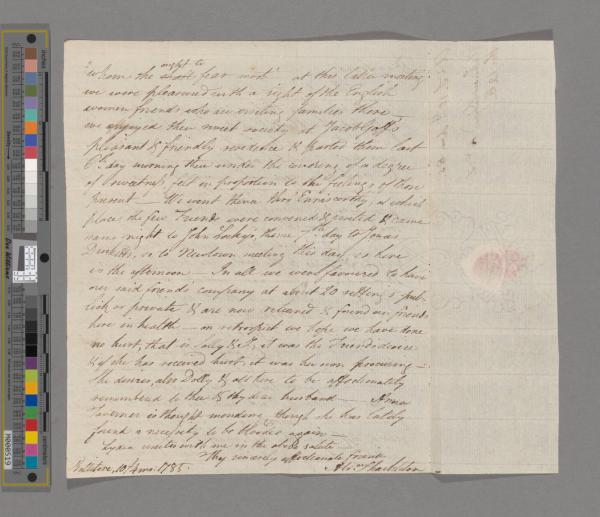 whom the ought to fear most at this latter meeting
we were pleasured with a sight of the English
women friends who are visiting families there
we enjoyed their sweet society at Jacob Goff's
pleasant & friendly residence & parted them last
6th day morning then under the covering of a degree
of sweetness felt in proportion to the feelings of those
present — We went thence thro' Enniscorthy, at which
place the few Friends were convened & visited & came
same night to John thence 7th day to Jonas
so to Newtown meeting this day, so here
in the afternoon — In all we were favoured to have
our said friends company at about 20 settings pub-
lick or private & are now released & found our friends
here in health — on retrospect we hope we have done
no hurt, that is Lucy & I, it was the Friends desire
& if she has received hurt, it was her own procuring —
She desires, also Dolly & all here to be affectionately
remembered to thee & thy dear husband — Anna
Taverner is thought mending, though she has lately
found a necessity to be blooded again —
Lydia unites with me in the above salute
Thy sincerely affectionate friend
10th 4mo: 1785. Abm Shackleton
inches
centimeters
Don Williams
M000519